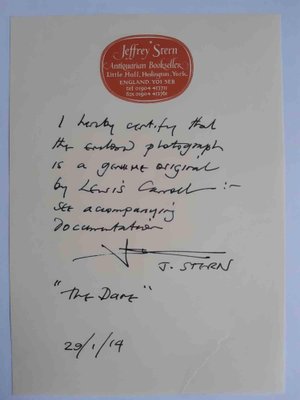 Jeffrey Stern
Antiquarian Bookseller
Little Hall, Heslington, York.
ENGLAND. YO1 5EB
I hereby certify that
the enclosed photograph
is a genuine original
by Lewis Carroll :-
see accompanying
documentation
J. STERN
"The Dare"
29/1/14